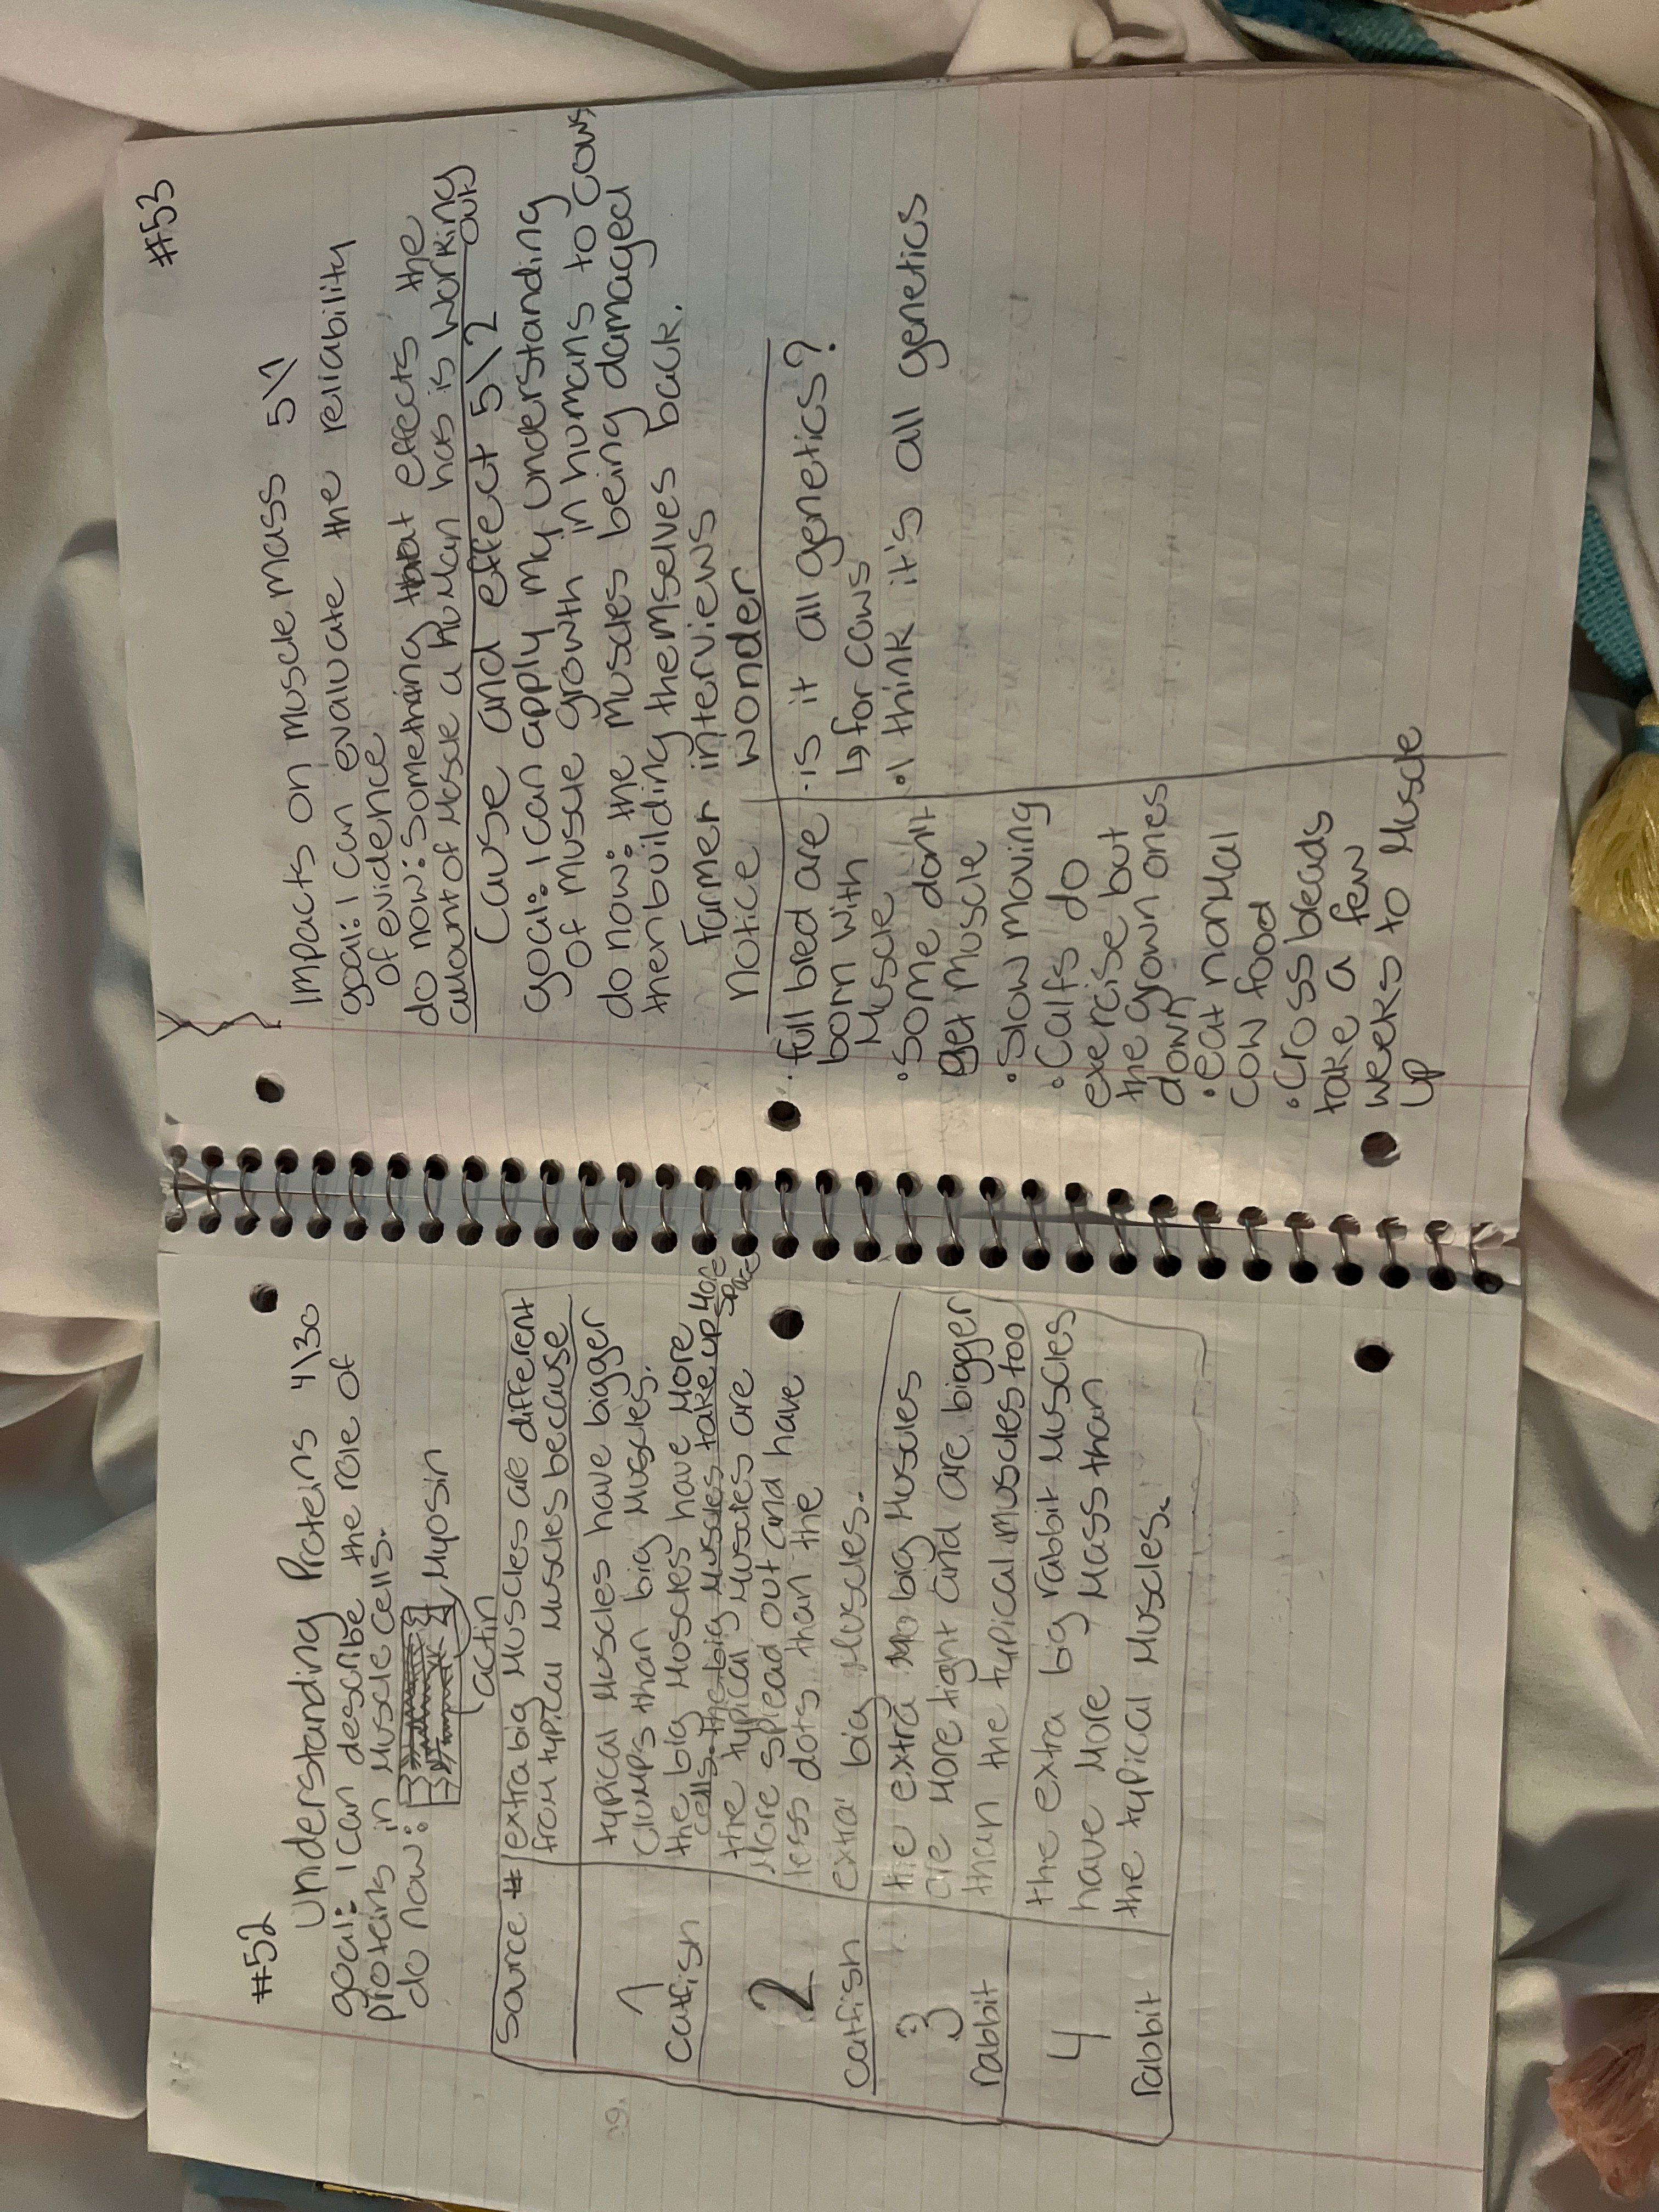 #52
Understanding Proteins 4\30
goal: I can describe the role of
proteins in Muscle cells.
do now:
Myosin
actin
Source #
extra big Muscles are different
from typical Muscles because
1
catfish
typical Muscles have bigger
clumps than big Muscles.
the big Muscles have More
cells. the big Muscles take up More
space
2
catfish
the typical Muscles are
More spread out and have
less dots than the
extra big Muscles.
3
rabbit
the extra big Muscles
are More tight and are bigger
than the typical Muscles too
4
rabbit
the extra big rabbit Muscles
have More Mass than
the typical Muscles.
#53
Impacts on Muscle mass 5\1
goal: I can evaluate the reliability
of evidence
do now: Something that effects the
amount of Moscle a huMan has is working
out
Cause and effect 5\2
goal: I can apply My understanding
of Muscle growth in humans to cows
do now: the Muscles being damaged
then building theMselves back.
Farmer interviews
Notice
wonder
· full bred are
born with
Muscle
• Some don't
get Muscle
• Slow Moving
• Calfs do
exercise but
the grown ones
down
• eat norMal
cow food
• Cross breads
take a few
weeks to Muscle
up
· is it all genetics?
↳ for cows
• I think it's all genetics